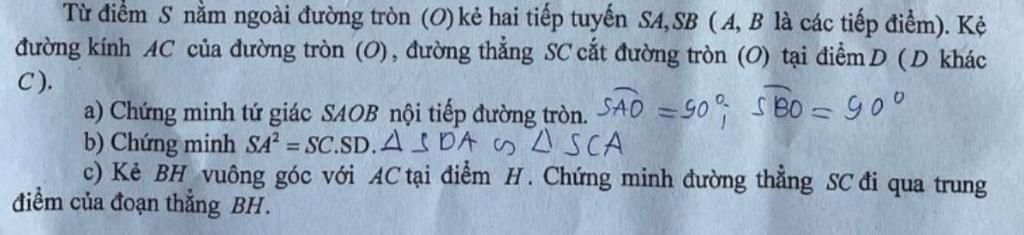 Từ điểm S nằm ngoài đường tròn (O) kẻ hai tiếp tuyến SA, SB ( A, B là các tiếp điểm). Kẻ
đường kính AC của đường tròn (O), đường thẳng SC cắt đường tròn (O) tại điểm D ( D khác
C ).
a) Chứng minh tứ giác SAOB nội tiếp đường tròn. SAO = 90°; SBO = 90°
b) Chứng minh SA² = SC.SD. Δ SDA ∽ Δ SCA
c) Kẻ BH vuông góc với AC tại điểm H. Chứng minh đường thẳng SC đi qua trung
điểm của đoạn thẳng BH.